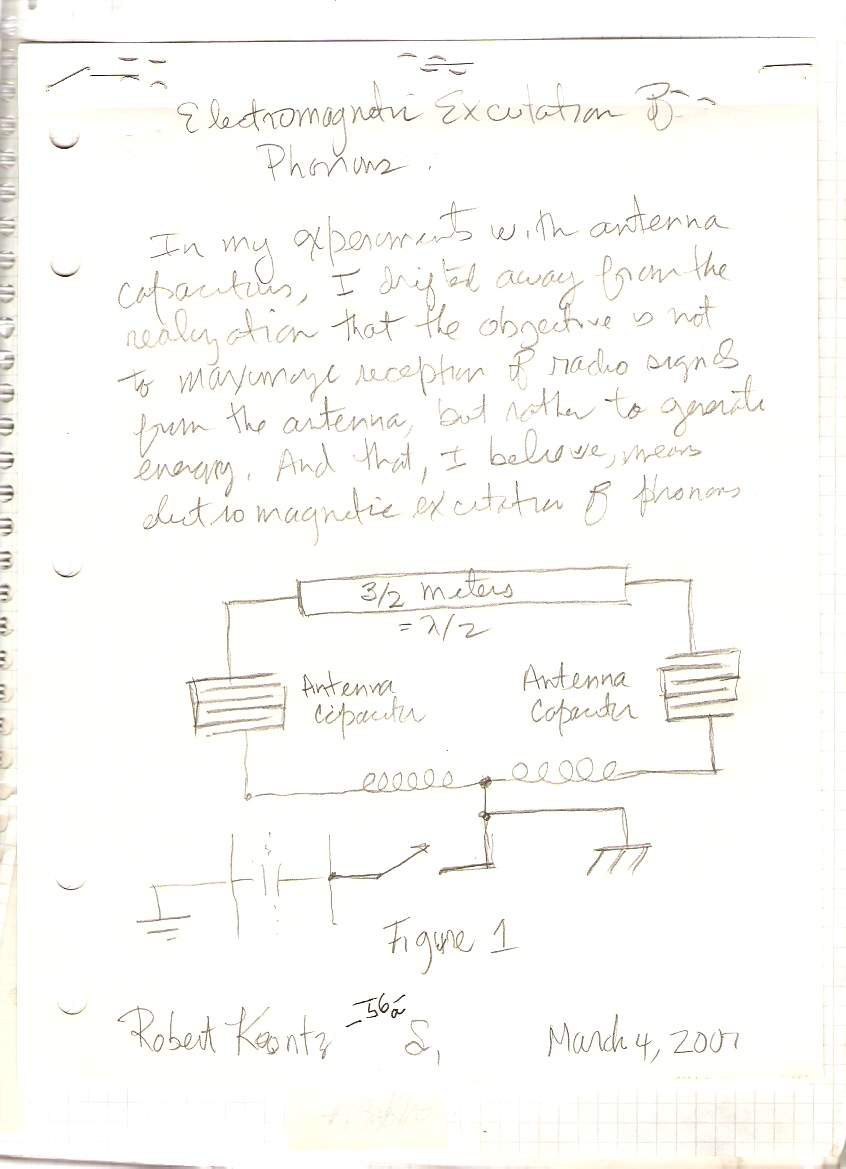 Electromagnetic Excitation of
Phonons.
In my experiments with antenna
capacitors, I drifted away from the
realization that the objective is not
to maximize reception of radio signals
from the antenna, but rather to generate
energy. And that, I believe, means
electromagnetic excitation of phonons
3/2 meters
= λ/2
Antenna
Capacitor
Antenna
Capacitor
Figure 1
Robert Koontz
March 4, 2007